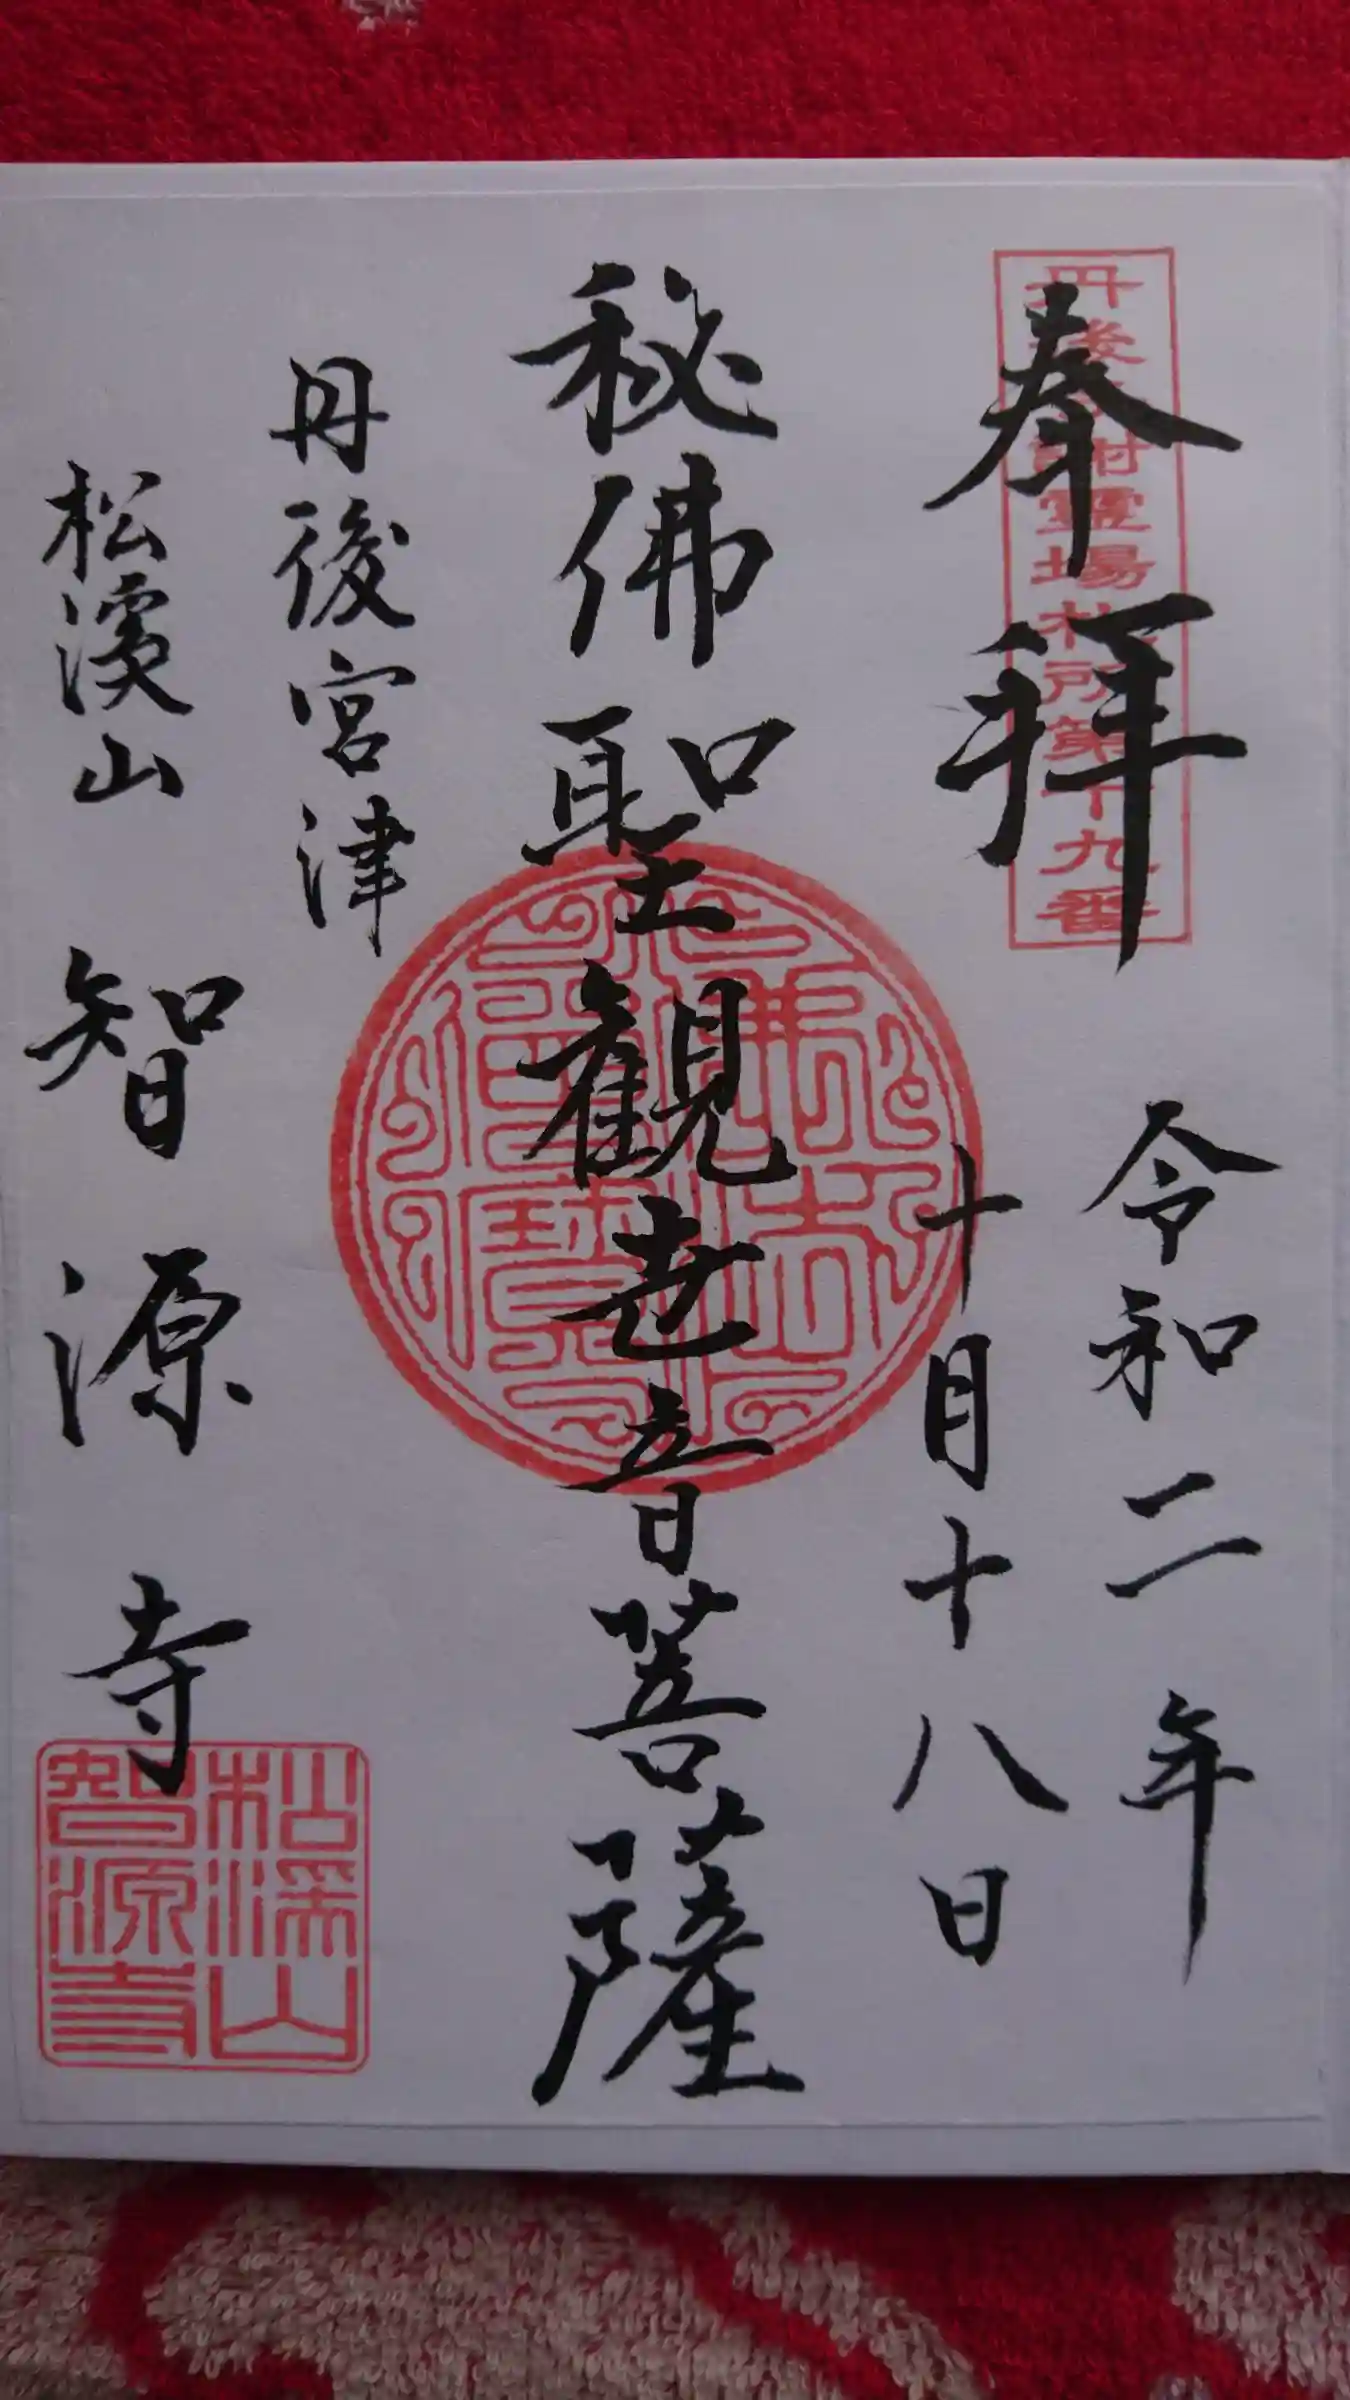 奉拝
丹後與謝霊場札所第十九番
令和二年
十月十八日
秘佛聖観世音菩薩
佛法僧寶
丹後宮津
松濱山
智源寺
松濱山
智源寺